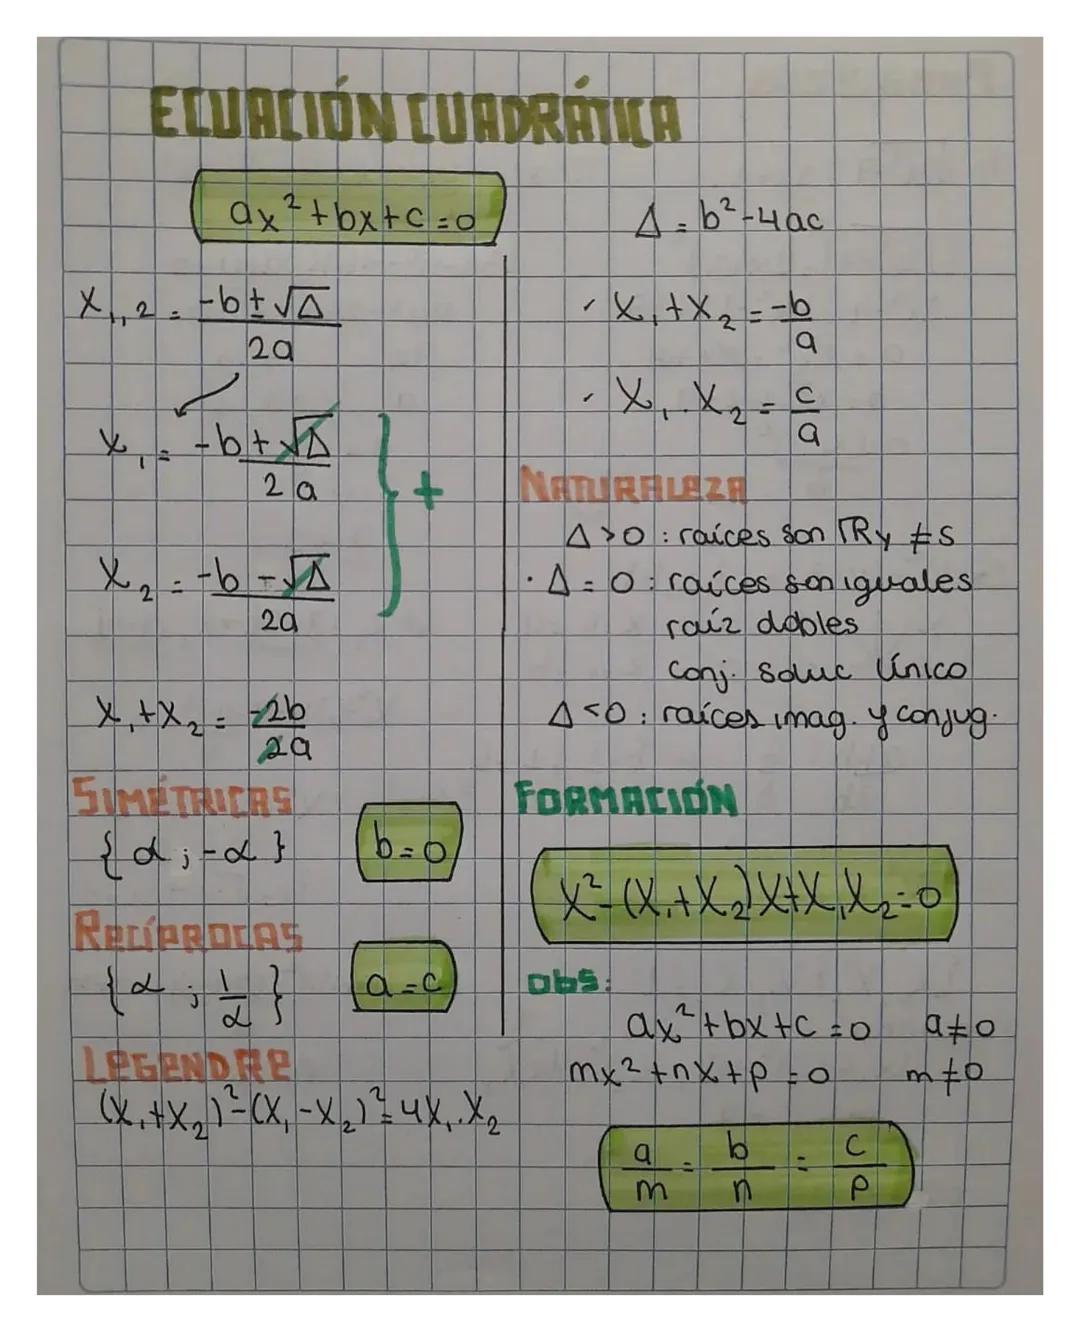 ECUACIÓN CUADRÁTICA
ax²+bx+c=0
Δ=b²-4ac
X₁,₂ = (-b±√Δ)/2a
X₁ = (-b+√Δ)/2a
X₂ = (-b-√Δ)/2a
+
X₁+X₂ = -2b/2a
SIMÉTRICAS
{α;-α} b=0
RECÍPROCAS
{α;1/α} a=c
LEGENDRE
(X₁+X₂)²-(X₁-X₂)²=4X₁.X₂
X₁+X₂ = -b/a
X₁.X₂ = c/a
NATURALEZA
Δ>0: raíces son ℝ y ≠s
· Δ=0: raíces son iguales
raíz dobles
conj. soluc único
Δ<0: raíces imag. y conjug.
FORMACIÓN
X²-(X₁+X₂)X+X₁X₂=0
obs:
ax²+bx+c=0 a≠0
mx²+nx+p=0 m≠0
a/m = b/n = c/p